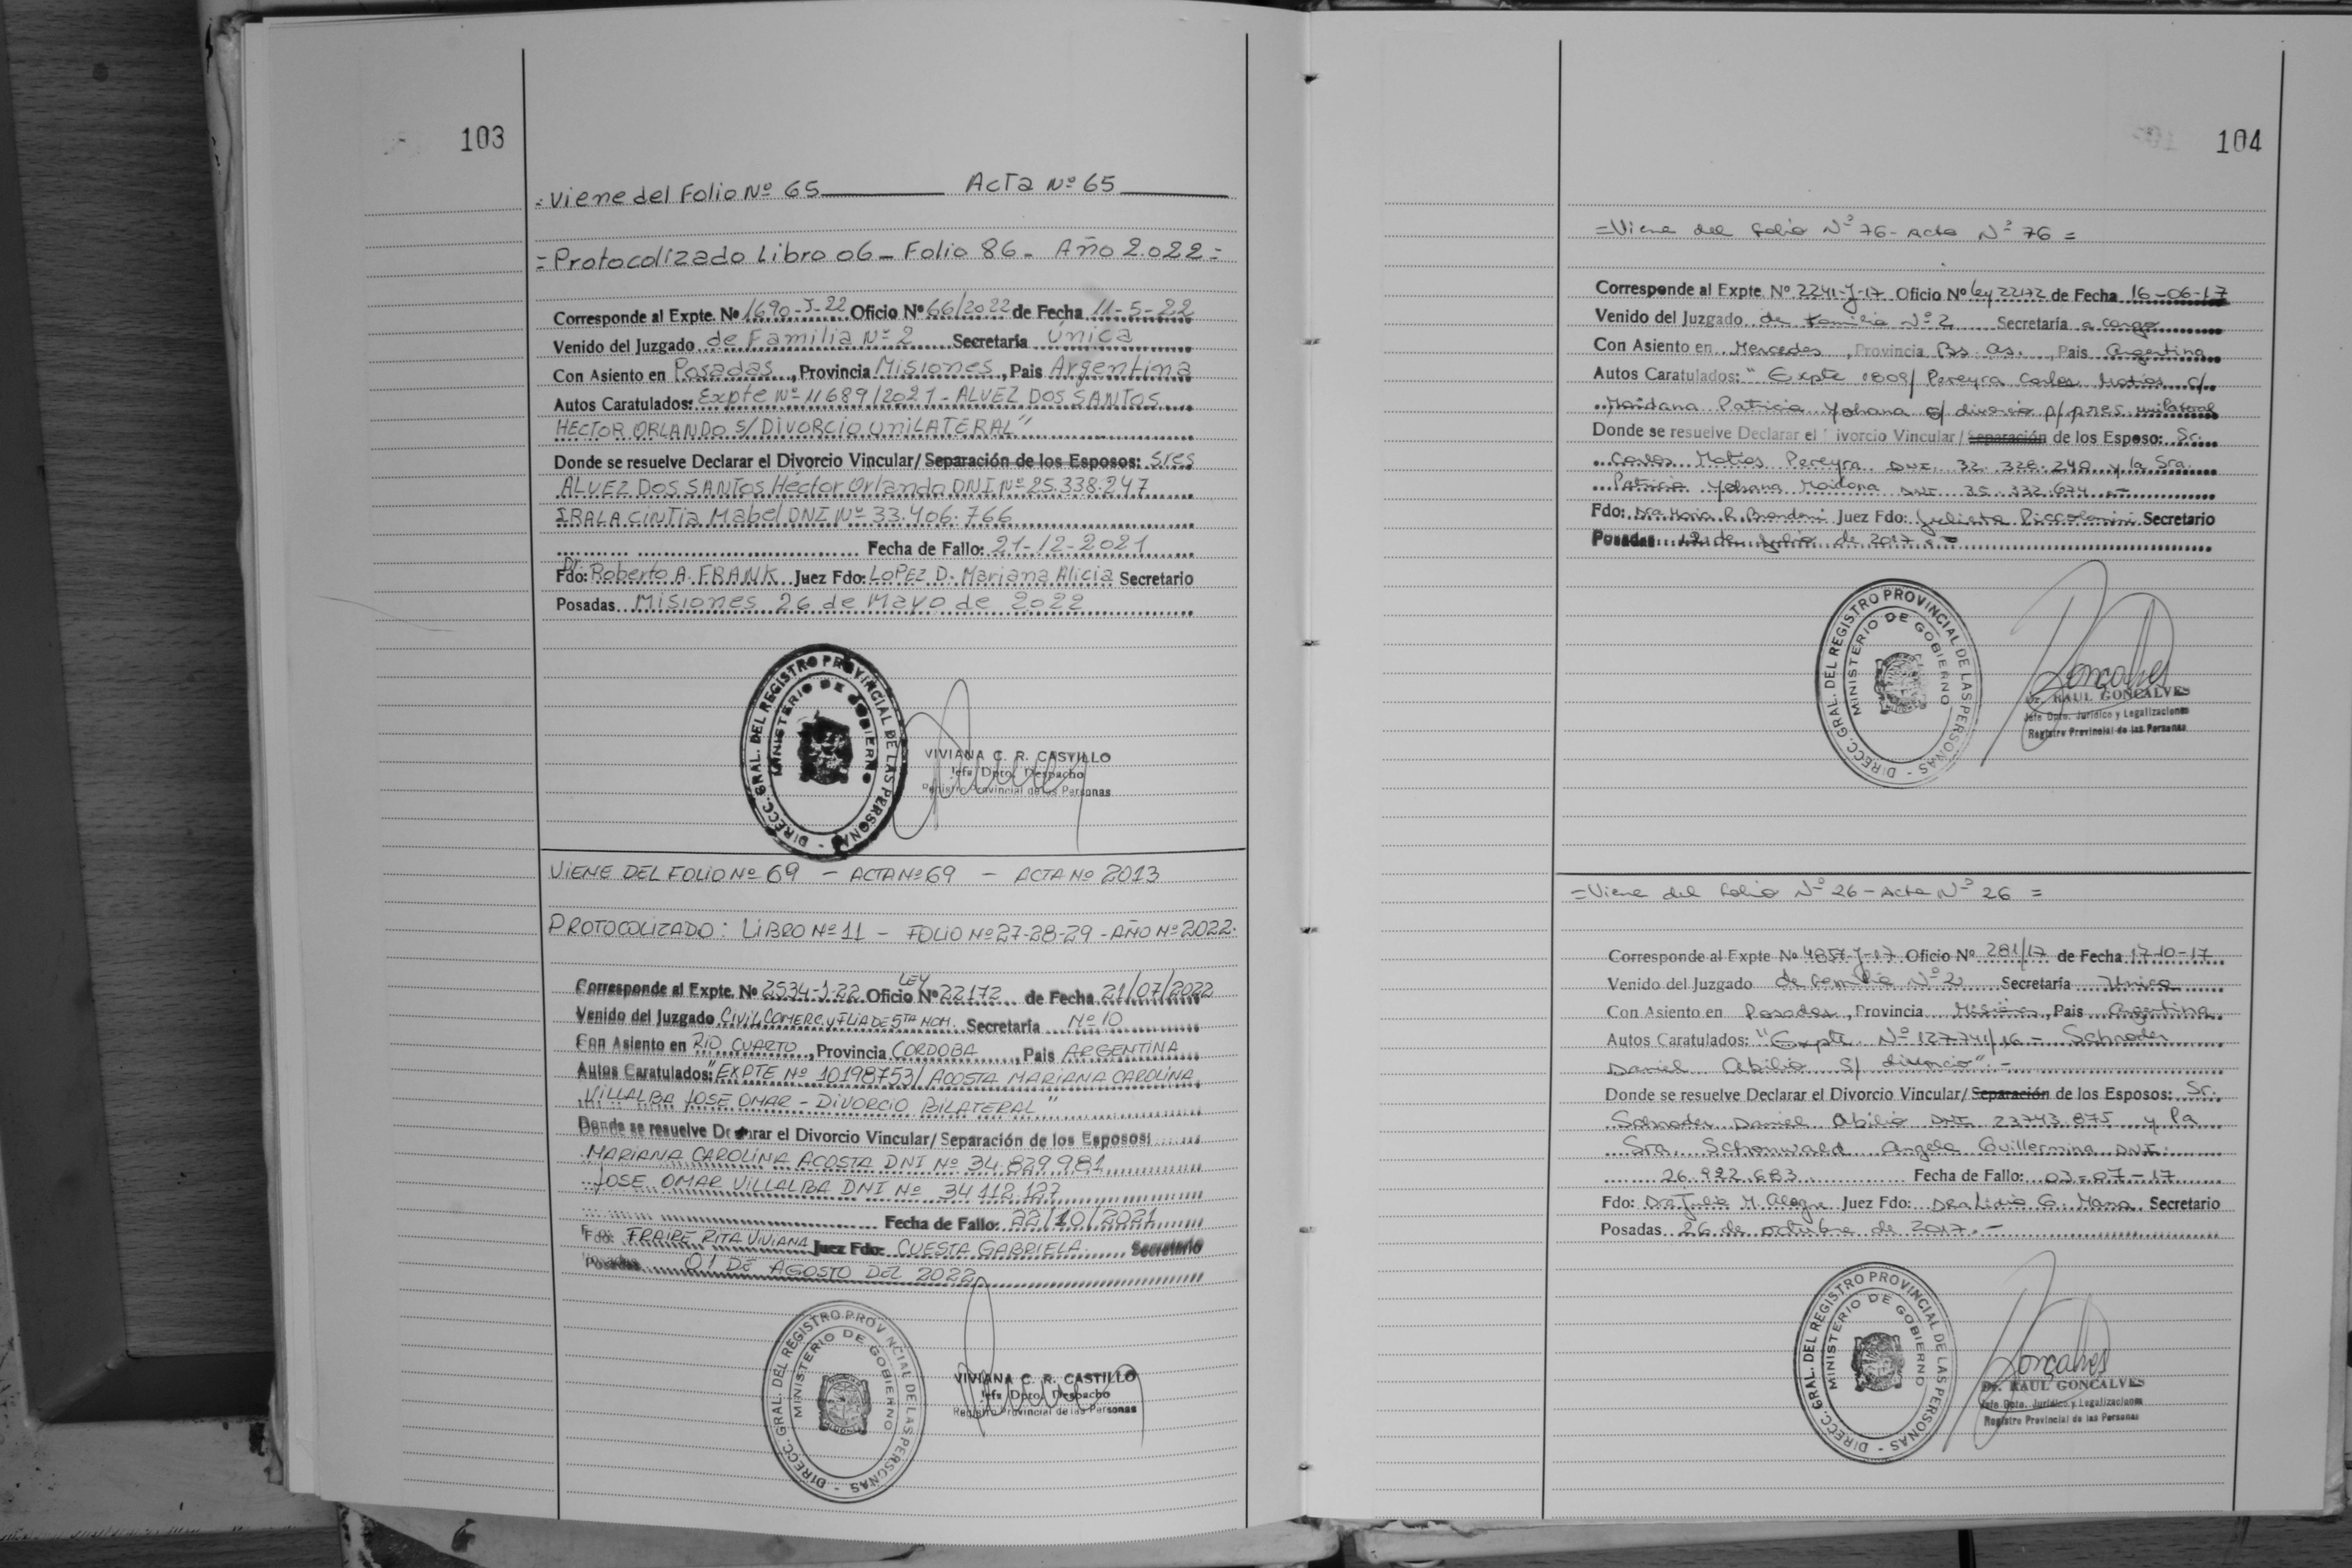 103
=Viene del Folio Nº 65 Acta Nº 65
=Protocolizado Libro 06 - Folio 86 - Año 2.022=
Corresponde al Expte. Nº 1690-J-22 Oficio Nº 66/2022 de Fecha 11-5-22
Venido del Juzgado de Familia Nº 2 Secretaría Única
Con Asiento en Posadas, Provincia Misiones, Pais Argentina
Autos Caratulados: Expte Nº 11689/2021 - ALVEZ DOS SANTOS
HECTOR ORLANDO S/ DIVORCIO UNILATERAL"
Donde se resuelve Declarar el Divorcio Vincular/ Separación de los Esposos: Sres
ALVEZ DOS SANTOS Héctor Orlando DNI Nº 25.338.247
IRALA CINTIA Mabel DNI Nº 33.406.766
Fecha de Fallo: 21-12-2021
Fdo: Dr. Roberto A. FRANK Juez Fdo: LOPEZ D. Mariana Alicia Secretario
Posadas Misiones 26 de Mayo de 2022
DIRECC. GRAL. DEL REGISTRO PROVINCIAL DE LAS PERSONAS -
MINISTERIO DE GOBIERNO
VIVIANA C. R. CASTILLO
Jefa Dpto. Despacho
Registro Provincial de las Personas
VIENE DEL FOLIO Nº 69 - ACTA Nº 69 - ACTA Nº 2013
PROTOCOLIZADO: LIBRO Nº 11 - FOLIO Nº 27-28-29 - AÑO Nº 2022.
Corresponde al Expte. Nº 2534-J-22 Oficio LEY Nº 22172 de Fecha 21/07/2022
Venido del Juzgado CIVIL, COMERC. y FLIA DE 5TA NOM. Secretaría Nº 10
Con Asiento en RIO CUARTO, Provincia CORDOBA, Pais ARGENTINA
Autos Caratulados: "EXPTE Nº 10198753/ ACOSTA MARIANA CAROLINA
VILLALBA JOSE OMAR - DIVORCIO BILATERAL"
Donde se resuelve Declarar el Divorcio Vincular/ Separación de los Esposos:
MARIANA CAROLINA ACOSTA DNI Nº 34.829.981
JOSE OMAR VILLALBA DNI Nº 34.112.127
Fecha de Fallo: 22/10/2021
Fdo: FRAIRE RITA VIVIANA Juez Fdo: CUESTA GABRIELA Secretario
Posadas 01 DE AGOSTO DEL 2022
DIRECC. GRAL. DEL REGISTRO PROVINCIAL DE LAS PERSONAS -
MINISTERIO DE GOBIERNO
VIVIANA C. R. CASTILLO
Jefa Dpto. Despacho
Registro Provincial de las Personas
104
=Viene del folio Nº 76 - Acta Nº 76=
Corresponde al Expte Nº 2241-J-17 Oficio Nº ley 22172 de Fecha 16-06-17
Venido del Juzgado de Familia Nº 2 Secretaría a cargo
Con Asiento en Mercedes, Provincia Bs. As., Pais Argentina
Autos Caratulados: "Expte 1809/ Pereyra Carlos Matias c/
Maidana Patricia Yohana s/ divorcio p/ pres. unilateral
Donde se resuelve Declarar el ivorcio Vincular/ Separación de los Esposo: Sr.
Carlos Matias Pereyra DNI. 32.328.240 y la Sra.
Patricia Yohana Maidana DNI 35.332.674 .-
Fdo: Dra Maria R. Brandani Juez Fdo: Julieta Piccolomini Secretario
Posadas: 12 de Julio de 2017.-
DIRECC. GRAL. DEL REGISTRO PROVINCIAL DE LAS PERSONAS -
MINISTERIO DE GOBIERNO
Goncalves
Dr. RAUL GONCALVES
Jefe Dpto. Jurídico y Legalizaciones
Registro Provincial de las Personas
=Viene del folio Nº 26 - Acta Nº 26=
Corresponde al Expte Nº 4857-J-17 Oficio Nº 281/17 de Fecha 17-10-17
Venido del Juzgado de Familia Nº 2 Secretaría Unica
Con Asiento en Posadas, Provincia Misiones, Pais Argentina
Autos Caratulados: "Expte Nº 127741/16 - Schroder
Daniel Abilio s/ divorcio" -
Donde se resuelve Declarar el Divorcio Vincular/ Separación de los Esposos: Sr.
Schroder Daniel Abilio DNI 23743.875 y la
Sra. Schonwald Angela Guillermina DNI.
26.922.683 Fecha de Fallo: 03-07-17
Fdo: Dra Julia M. Alegre Juez Fdo: Dra Lidia G. Mana Secretario
Posadas 26 de octubre de 2017.-
DIRECC. GRAL. DEL REGISTRO PROVINCIAL DE LAS PERSONAS -
MINISTERIO DE GOBIERNO
Goncalves
Dr. RAUL GONCALVES
Jefe Dpto. Jurídico y Legalizaciones
Registro Provincial de las Personas